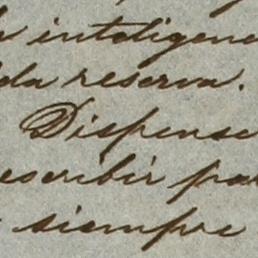 inteligenc
da reserva.
Dispense
escribir pa
siempre